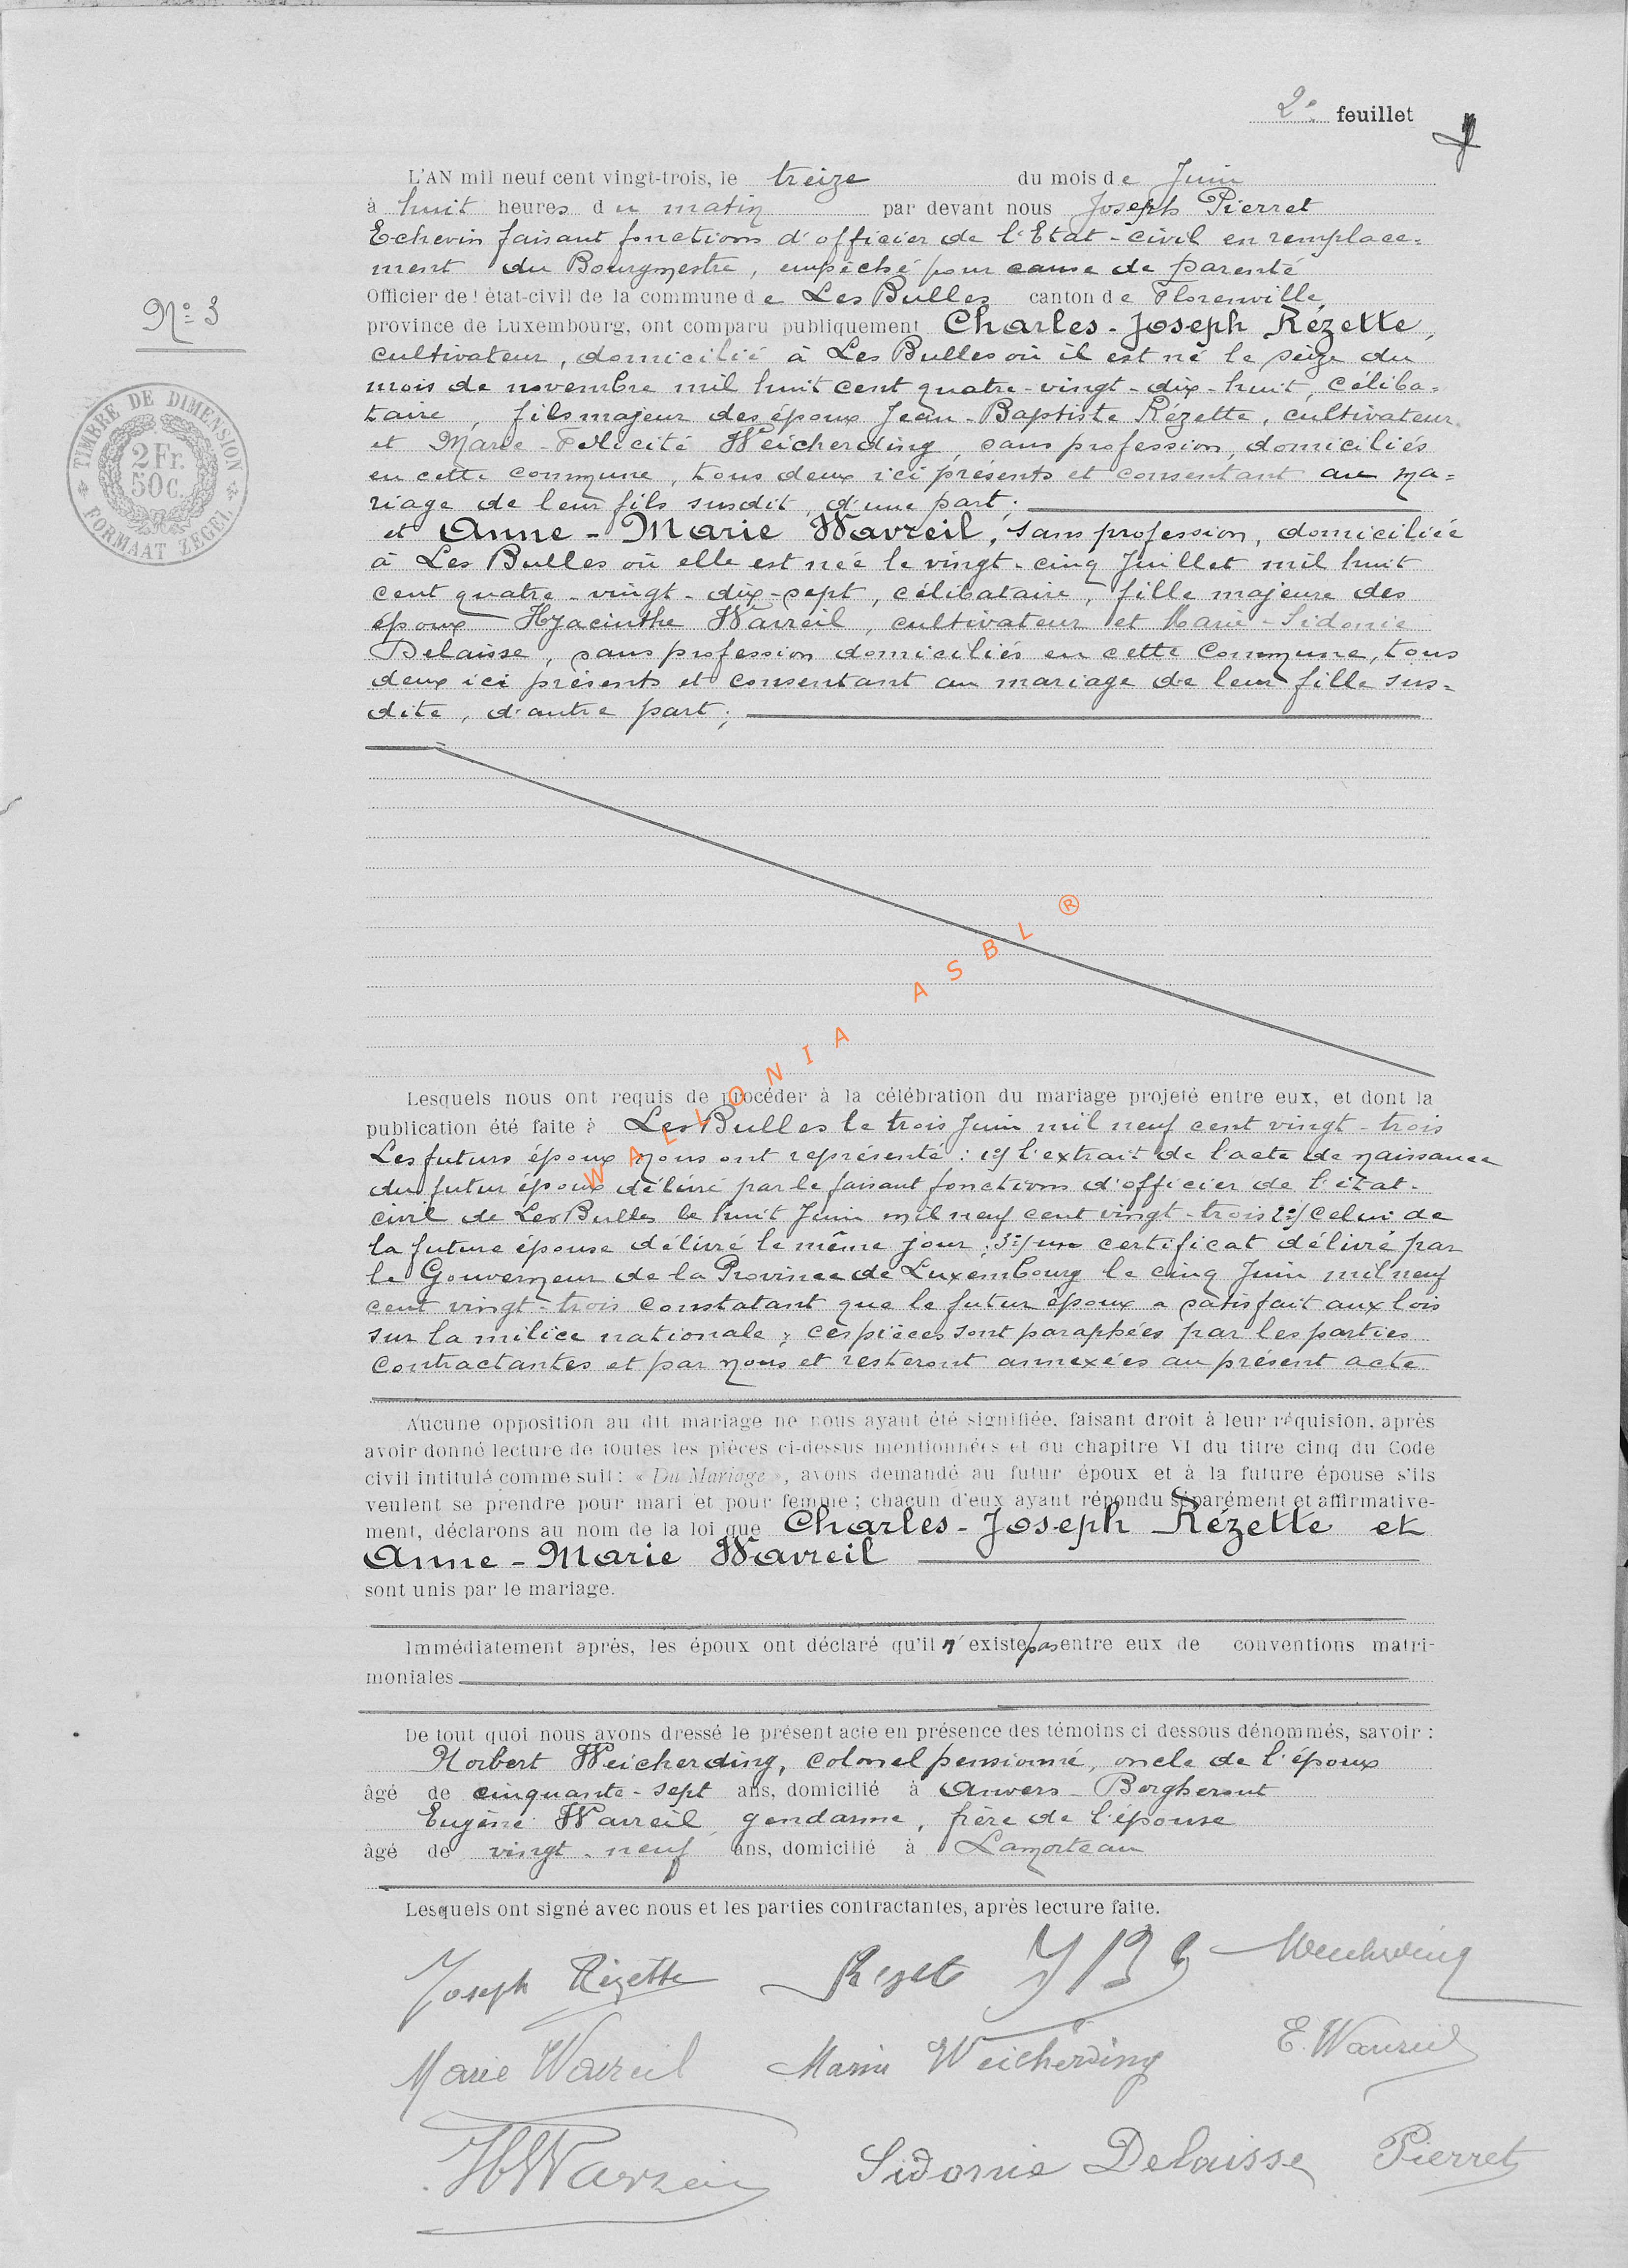 2e feuillet
L'AN mil neuf cent vingt-trois, le treize du mois de Juin
à huit heures du matin par devant nous Joseph Pierret
Echevin faisant fonctions d'officier de l'Etat-civil en remplace=
ment du Bourgmestre, empêché pour cause de parenté
Officier de l'état-civil de la commune de Les Bulles canton de Florenville,
N° 3
province de Luxembourg, ont comparu publiquement Charles-Joseph Rézette,
cultivateur, domicilié à Les Bulles où il est né le seize du
mois de novembre mil huit cent quatre-vingt-dix-huit, céliba=
taire, fils majeur des époux Jean-Baptiste Rézette, cultivateur
et Marie-Félicité Weicherding, sans profession, domiciliés
en cette commune, tous deux ici présents et consentant au ma=
riage de leur fils susdit, d'une part;
et Anne-Marie Wavreil, sans profession, domiciliée
à Les Bulles où elle est née le vingt-cinq Juillet mil huit
cent quatre-vingt-dix-sept, célibataire, fille majeure des
époux Hyacinthe Wavreil, cultivateur et Marie-Sidonie
Delaisse, sans profession domiciliés en cette Commune, tous
deux ici présents et consentant au mariage de leur fille sus=
dite, d'autre part;
TIMBRE DE DIMENSION
2 Fr.
50 c.
FORMAAT ZEGEL
WALLONIA ASBL ®
Lesquels nous ont requis de procéder à la célébration du mariage projeté entre eux, et dont la
publication été faite à Les Bulles le trois Juin mil neuf cent vingt-trois
Les futurs époux nous ont représenté: 1°/ l'extrait de l'acte de naissance
du futur époux délivré par le faisant fonctions d'officier de l'état-
civil de Les Bulles le huit Juin mil neuf cent vingt-trois 2°/ celui de
la future épouse délivré le même jour; 3°/ un certificat délivré par
le Gouverneur de la Province de Luxembourg le cinq Juin mil neuf
cent vingt-trois constatant que le futur époux a satisfait aux lois
sur la milice nationale; ces pièces sont paraphées par les parties
contractantes et par nous et resteront annexées au présent acte
Aucune opposition au dit mariage ne nous ayant été signifiée, faisant droit à leur réquision, après
avoir donné lecture de toutes les pièces ci-dessus mentionnées et du chapitre VI du titre cinq du Code
civil intitulé comme suit: « Du Mariage », avons demandé au futur époux et à la future épouse s'ils
veulent se prendre pour mari et pour femme; chacun d'eux ayant répondu séparément et affirmative-
ment, déclarons au nom de la loi que Charles-Joseph Rézette et
Anne-Marie Wavreil
sont unis par le mariage.
Immédiatement après, les époux ont déclaré qu'il n'existe pas entre eux de conventions matri-
moniales
De tout quoi nous avons dressé le présent acte en présence des témoins ci dessous dénommés, savoir:
Norbert Weicherding, colonel pensionné, oncle de l'époux
âgé de cinquante-sept ans, domicilié à Anvers-Borgherout
Eugène Wavreil, gendarme, frère de l'épouse
âgé de vingt-neuf ans, domicilié à Lamorteau
Lesquels ont signé avec nous et les parties contractantes, après lecture faite.
Joseph Rézette Rezet J B Weicherding
Marie Wavreil Marie Weicherding E. Wavreil
H Wavreil Sidonie Delaisse Pierret